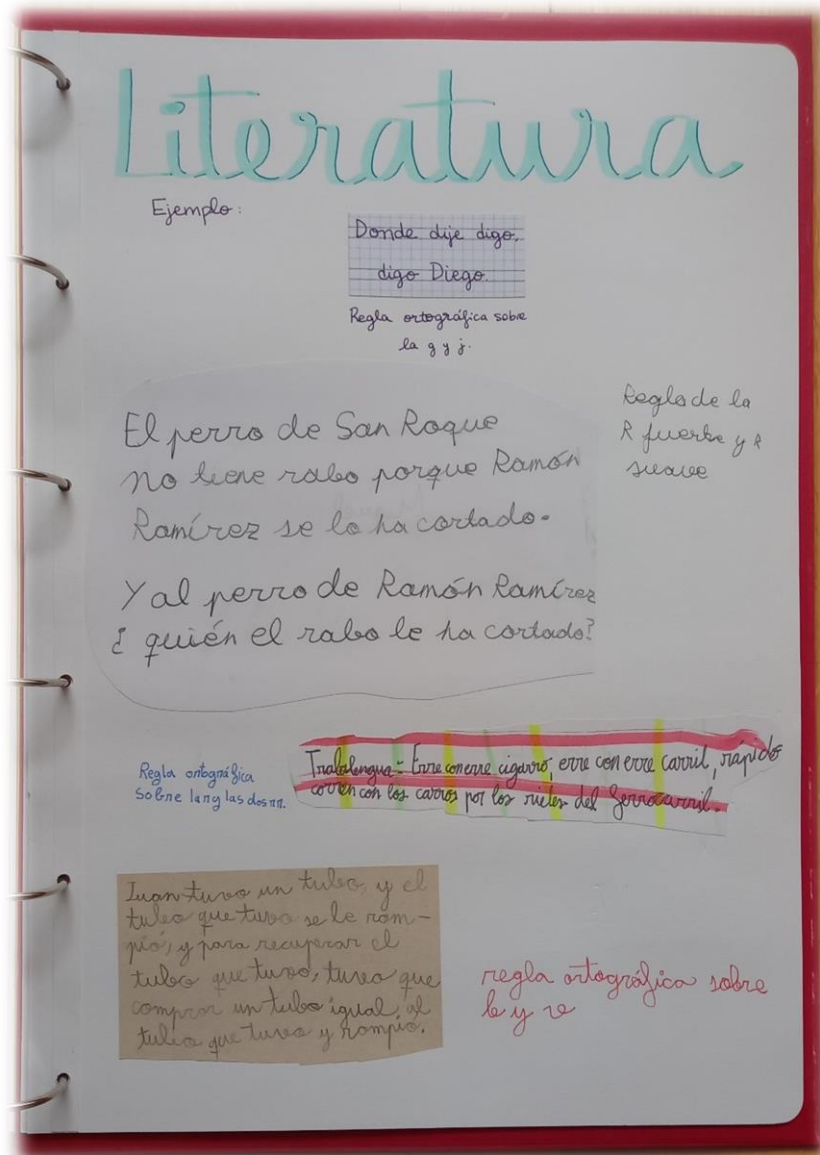 Literatura
Ejemplo:
Donde dije digo,
digo Diego.
Regla ortográfica sobre
la g y j.
El perro de San Roque
no tiene rabo porque Ramón
Ramírez se lo ha cortado.
Y al perro de Ramón Ramírez
¿quién el rabo le ha cortado?
Regla de la
R fuerte y R
suave
Trabalengua: Erre con erre cigarro, erre con erre carril, rápido
corren con los carros por los rieles del ferrocarril.
Regla ortográfica
sobre la r y las dos rr.
Juan tuvo un tubo, y el
tubo que tuvo se le rom-
pió, y para recuperar el
tubo que tuvo, tuvo que
comprar un tubo igual, al
tubo que tuvo y rompió.
regla ortográfica sobre
b y v